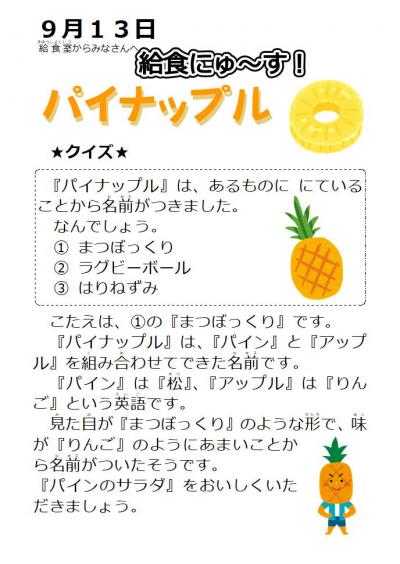 ９月１３日
給食室からみなさんへ
給食にゅ～す！
パイナップル
★クイズ★
『パイナップル』は、あるものに にている
ことから名前がつきました。
なんでしょう。
① まつぼっくり
② ラグビーボール
③ はりねずみ
こたえは、①の『まつぼっくり』です。
『パイナップル』は、『パイン』と『アップ
ル』を組み合わせてできた名前です。
『パイン』は『松』、『アップル』は『りん
ご』という英語です。
見た目が『まつぼっくり』のような形で、味
が『りんご』のようにあまいことか
ら名前がついたそうです。
『パインのサラダ』をおいしくいた
だきましょう。